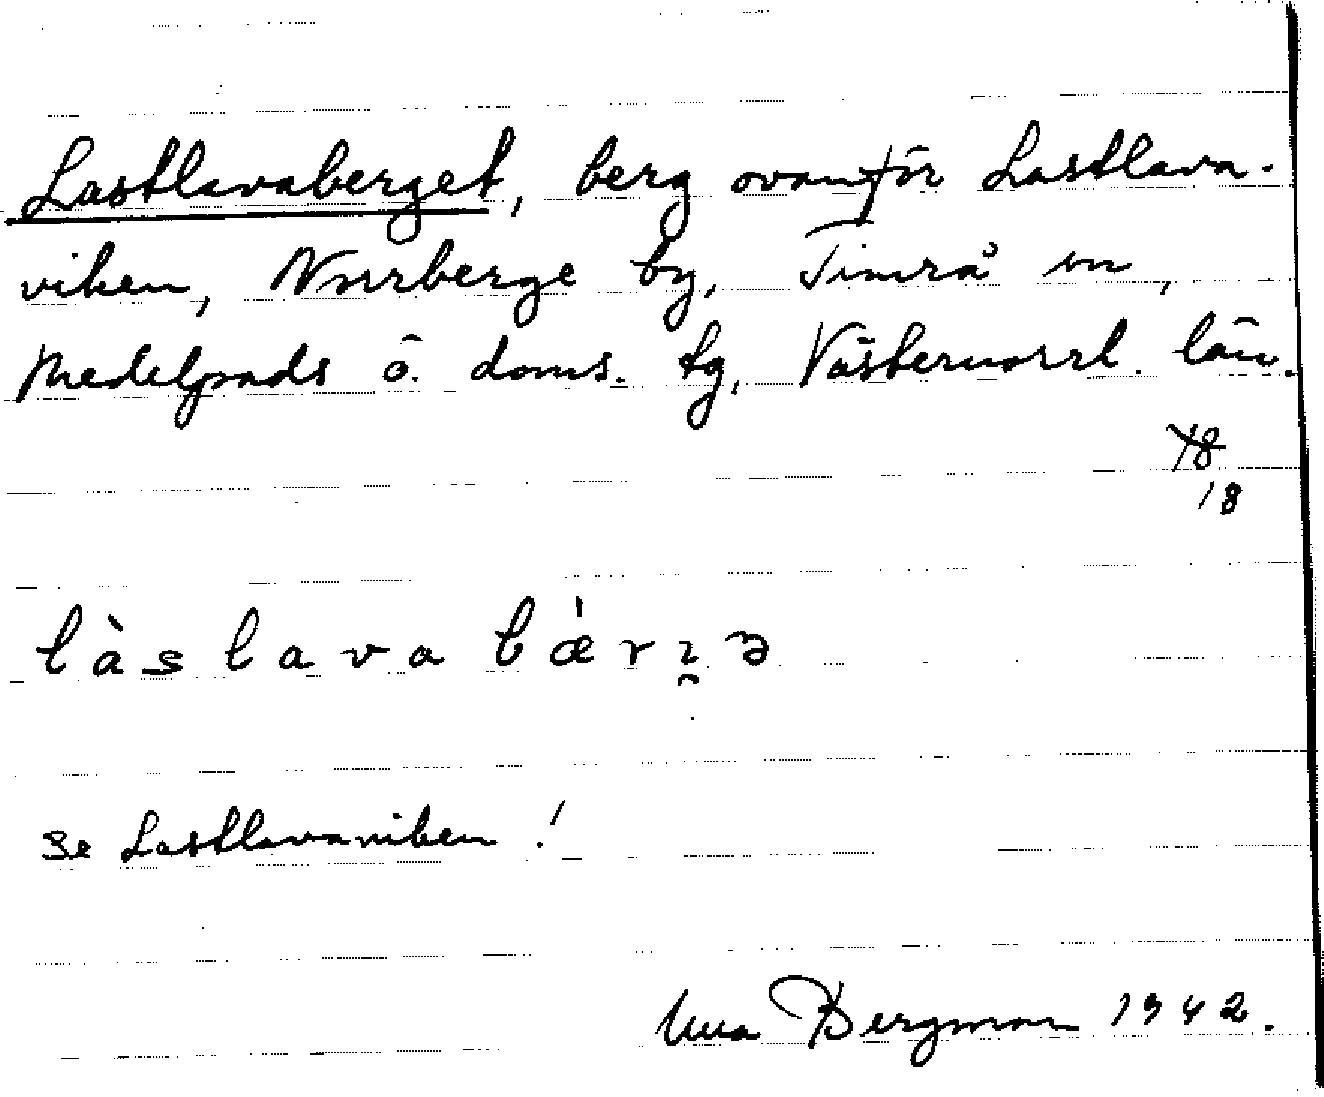 Lastlavaberget, berg ovanför Lastlava-
viken, Norrberge by, Timrå sn,
Medelpads ö. doms. tg, Västernorrl. län.
18
18
làslava bǽrɀ̯ə
se Lastlavaviken!
Una Bergman 1942.